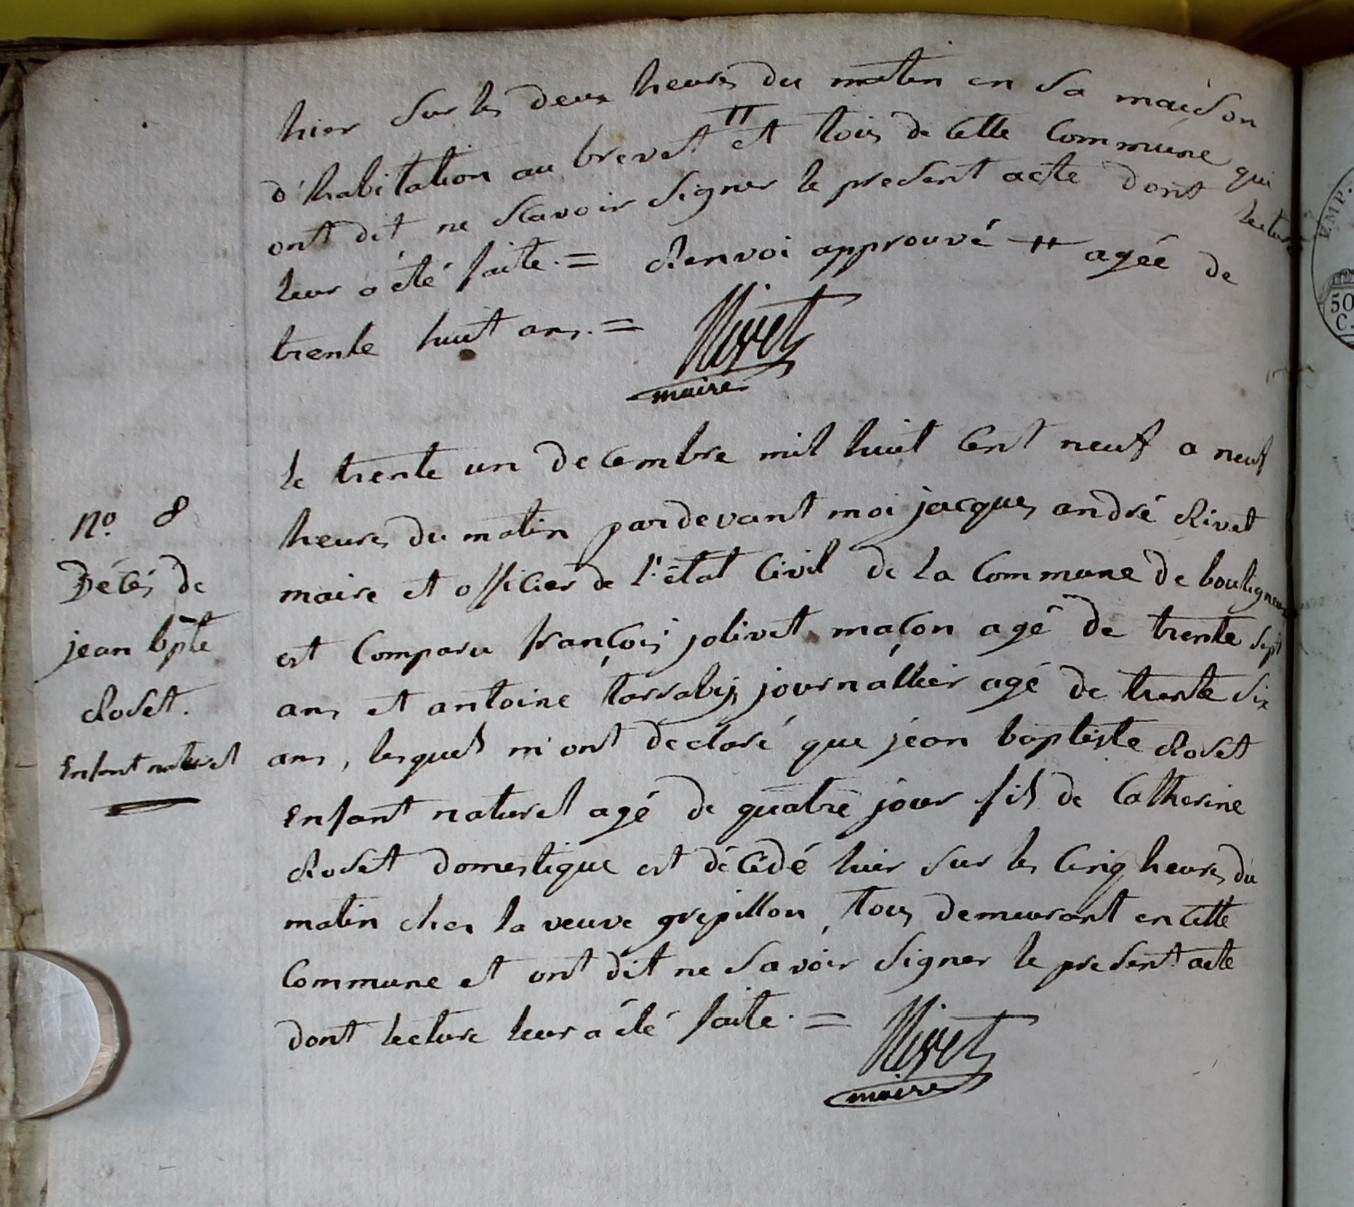 hier sur les deux heures du matin en sa maison
d'habitation au brevet # et tous de cette Commune qui
ont dit ne scavoir signer le present acte dont lecture
leur a été faite. = Renvoi approuvé # agée de
trente huit ans. =
Rivet
maire
Le trente un decembre mil huit Cent neuf a neuf
heures du matin pardevant moi jacques andré Rivet
maire et officier de l'état Civil de la Commune de bouligneux
est Comparu françois jolivet maçon agé de trente sept
ans et antoine journallier agé de trente six
ans, lesquels m'ont declaré que jean baptiste Roset
Enfant naturel agé de quatre jour fils de Catherine
Roset domestique est décédé hier sur les Cinq heures du
matin ches la veuve grepillon, tous demeurant en Cette
Commune et ont dit ne savoir signer le present acte
dont lecture leur a été faite. =
Rivet
maire
no. 8
Décés de
jean bpte
Roset.
Enfant naturel
EMP.
50
C.